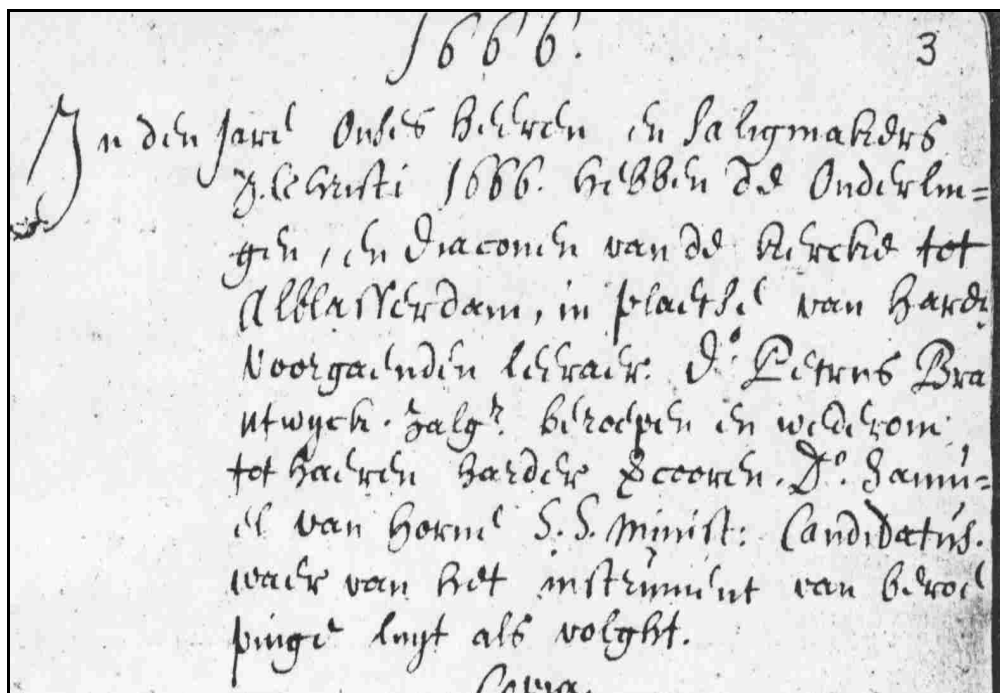 1666.
3
In den Jare Onses Heeren en Saligmakers
J. Christi 1666. hebben de Onderlin=
gen, en Diaconen van de kercke tot
Alblasserdam, in plaetse van haren
voorgaenden leeraer. D.º Petrus Bra
ntwyck. Zalgr. beroepen en wederom
tot haeren harder Zamu=
el van Horne S.S. Minist: Candidatus.
waer van het instrument van beroe
pinge luyt als volght.
Copia.